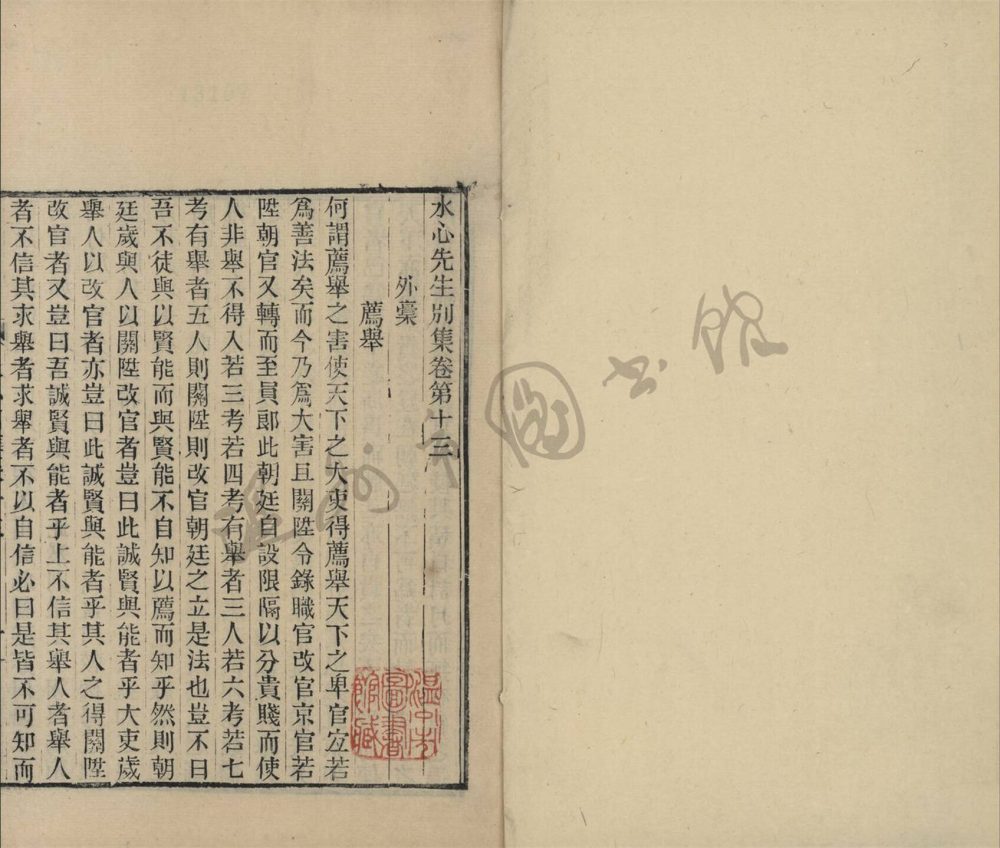 水心先生別集卷第十三
外稾
薦舉
何謂薦舉之害使天下之大吏得薦舉天下之卑官宐若
爲善法矣而今乃爲大害且關陞令錄職官改官京官若
陞朝官又轉而至員郎此朝廷自設限隔以分貴賤而使
人非舉不得入若三考若四考有舉者三人若六考若七
考有舉者五人則關陞則改官朝廷之立是法也豈不曰
吾不徒與以賢能而與賢能不自知以薦而知乎然則朝
廷歲與人以關陞改官者豈曰此誠賢與能者乎大吏歲
舉人以改官者亦豈曰此誠賢與能者乎其人之得關陞
改官者又豈曰吾誠賢與能者乎上不信其舉人者舉人
者不信其求舉者求舉者不以自信必曰是皆不可知而
溫州市圖書館藏
溫州市圖書館